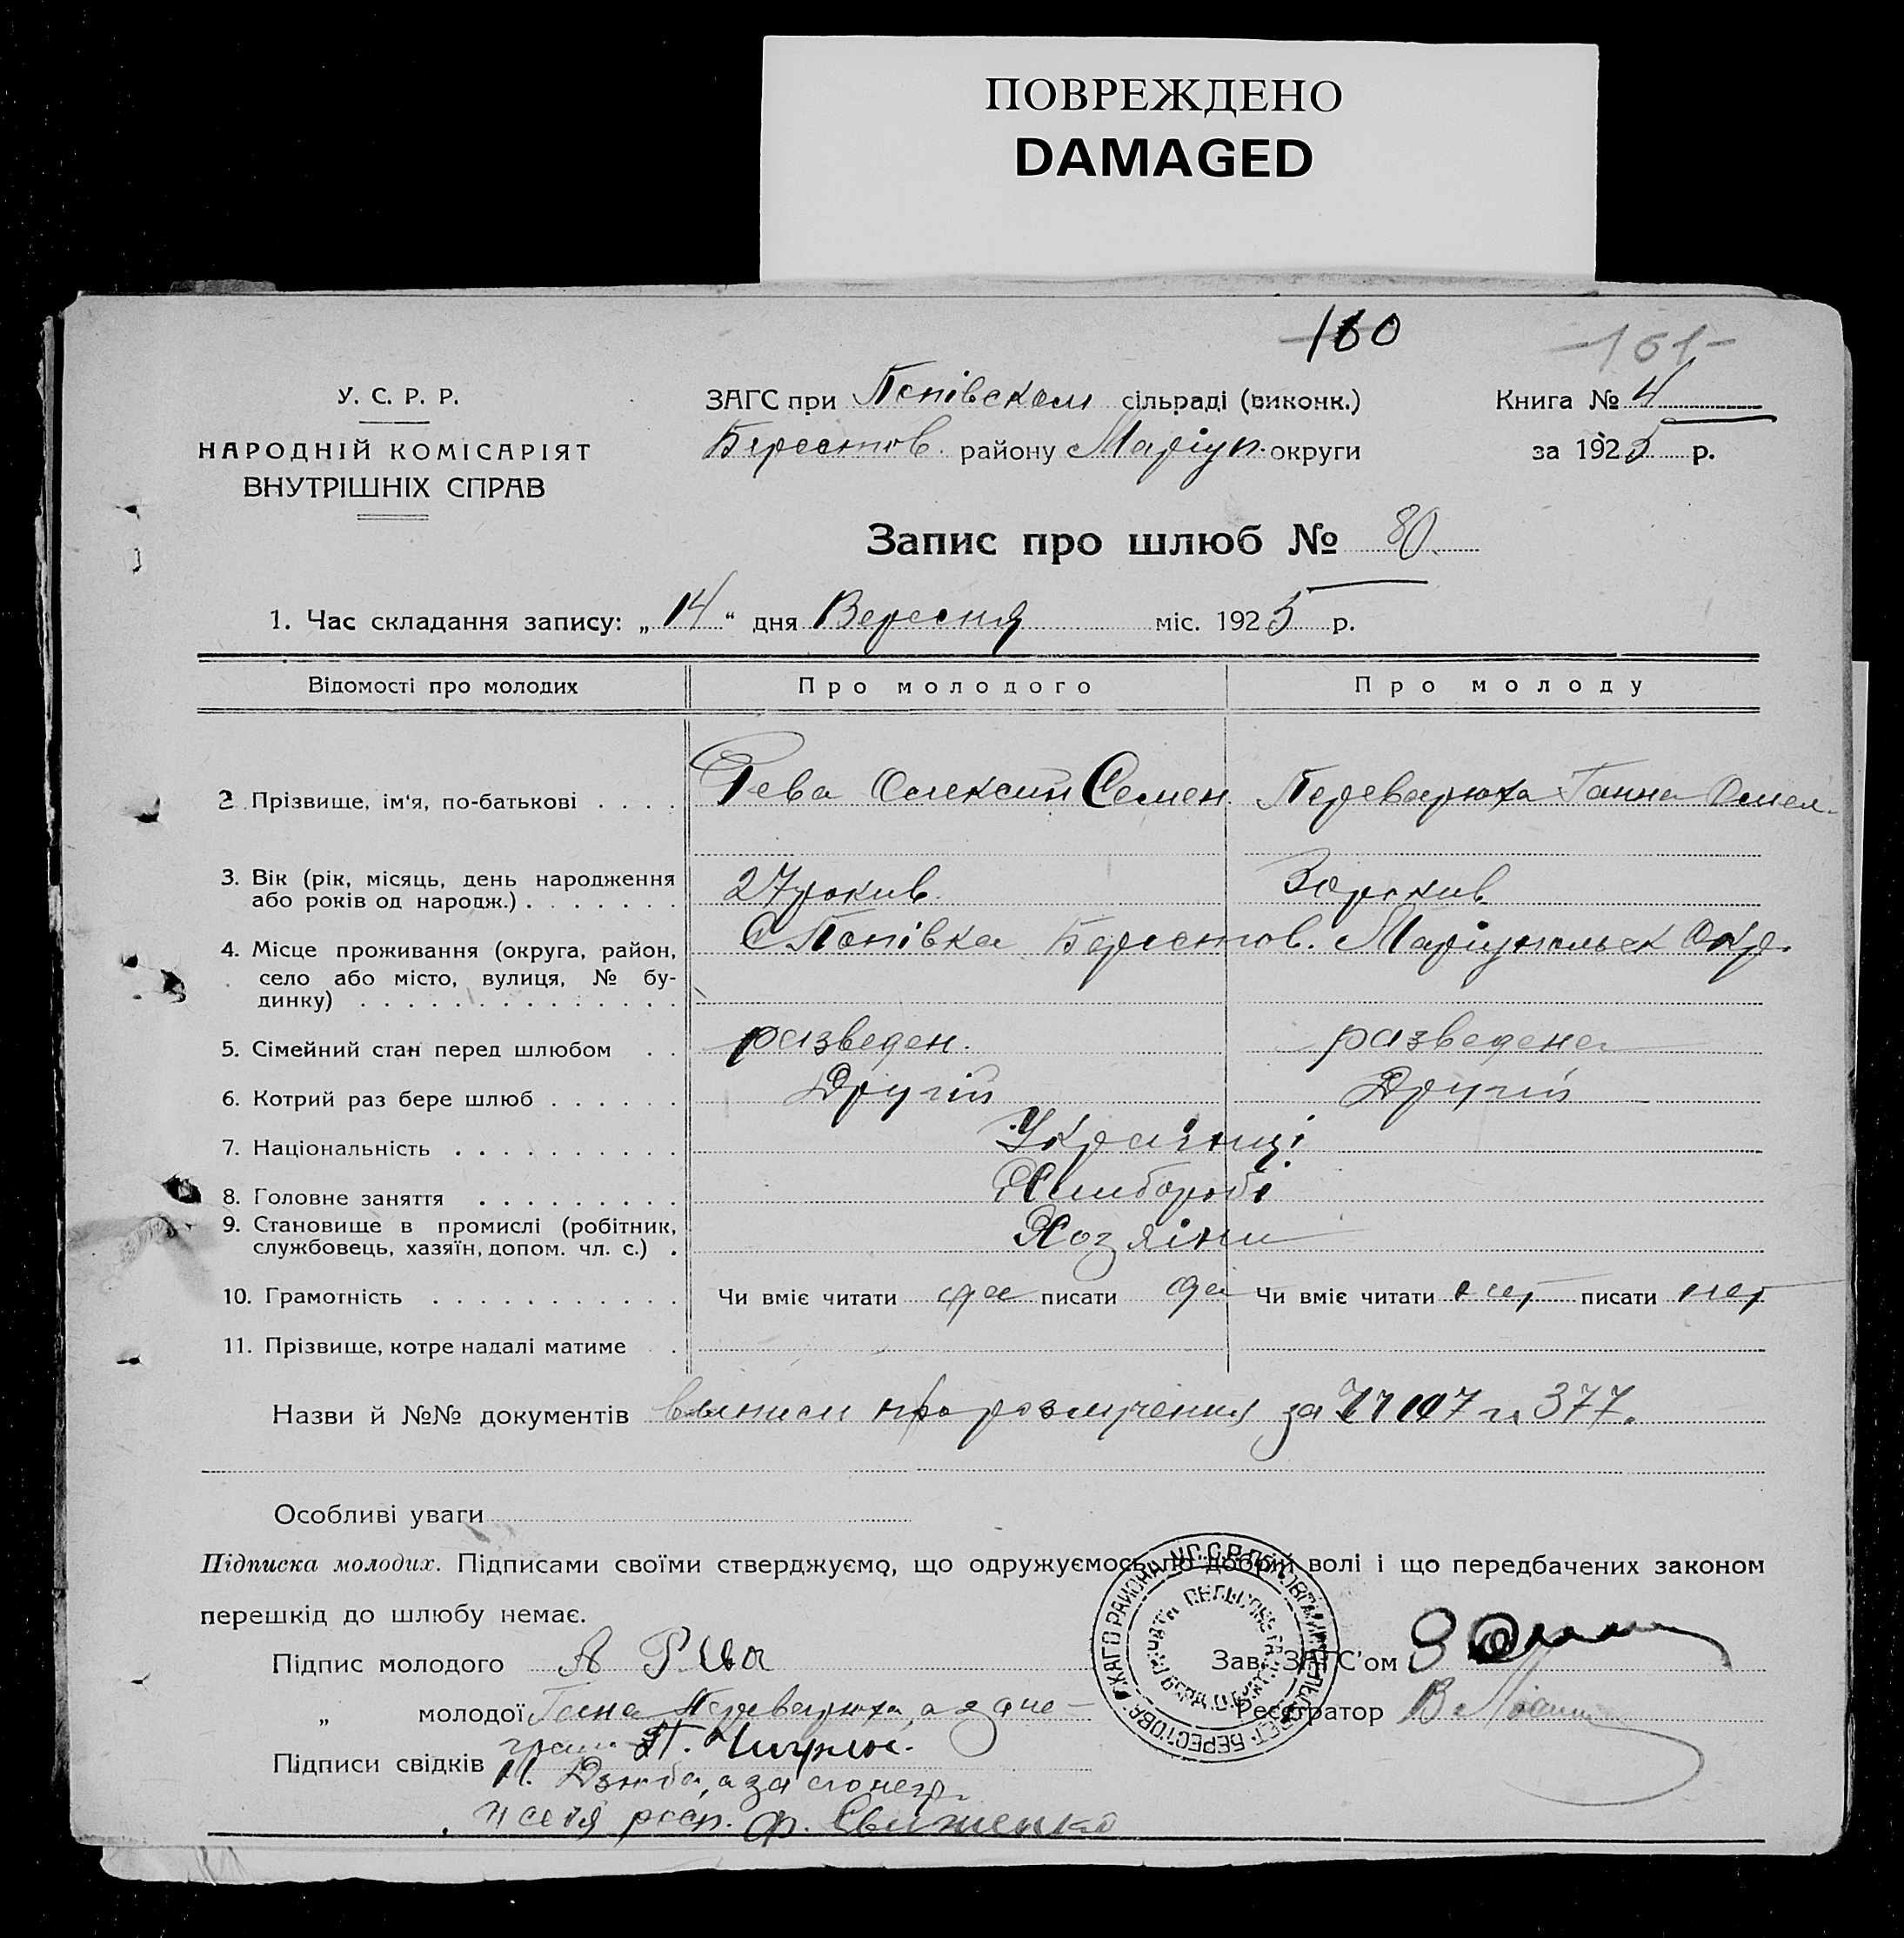 ПОВРЕЖДЕНО
DAMAGED
160
-161-
У. С. Р. Р.
НАРОДНІЙ КОМІСАРІЯТ
ВНУТРІШНІХ СПРАВ
ЗАГС при Попівском сільраді (виконк.)
Берестов. району Маріуп. округи
Книга № 4
за 1925 р.
Запис про шлюб № 80
1. Час складання запису: „14“ дня Вересня міс. 1925 р.
Відомості про молодих Про молодого Про молоду
2 Прізвище, ім'я, по-батькові . . . . Рева Олексий Семен. Переварюха Ганна Омел.
3. Вік (рік, місяць, день народження
або років од народж.) . . . . . . . 27 рокив. 30 рокив.
4. Місце проживання (округа, район,
село або місто, вулиця, № бу-
динку) . . . . . . . . . . . . . .
С Попівка Берестов. Маріупольск Окр.
5. Сімейний стан перед шлюбом . . разведен. разведена
6. Котрий раз бере шлюб . . . . . . Другій Другій
7. Національність . . . . . . . . . . Українці
8. Головне заняття . . . . . . . . . Хлибороби
9. Становище в промислі (робітник,
службовець, хазяїн, допом. чл. с.) . Хозяіни
10. Грамотність . . . . . . . . . . . Чи вміє читати да писати да Чи вміє читати нет писати нет
11. Прізвище, котре надалі матиме .
Назви й №№ документів выписи про розлучения за 377.
Особливі уваги
Підписка молодих. Підписами своїми стверджуємо, що одружуємось по добрій волі і що передбачених законом
перешкід до шлюбу немає.
Підпис молодого А Рева
Зав. ЗАГС'ом
„ молодої Ганна Переварюха, а за не-
Реєстратор В
Підписи свідків грам. П.
Дзюба, а за негр.
росп. Ф.